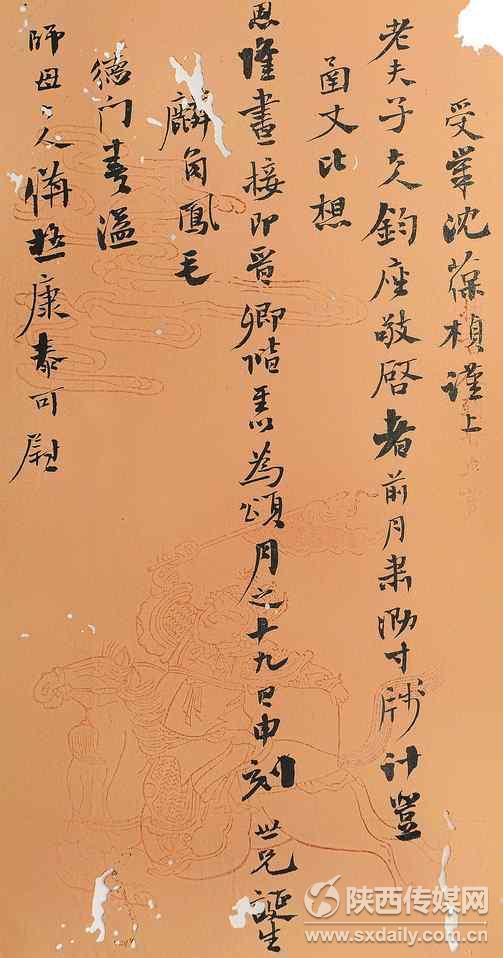 受業沈葆楨謹上
老夫子大人鈞座敬啓者前月肅泐寸牋計登
函丈比想
恩隆晝接即晉卿階為頌月之十九日申刻世兄誕生
麟角鳳毛
德門喜溢
師母大人備極康泰可慰
陕西传媒网
www.sxdaily.com.cn